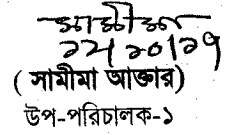 ২৮/১০/১৭
(সামীমা আক্তার)
উপ-পরিচালক-১